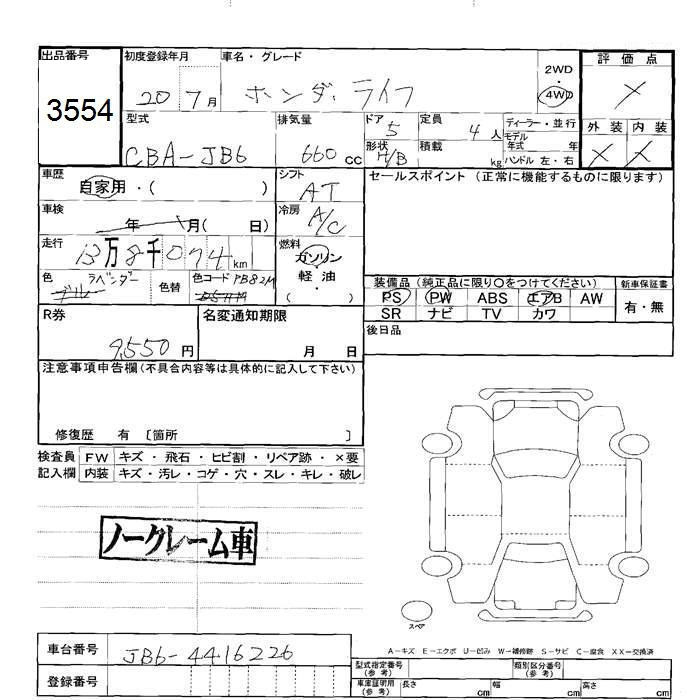 出品番号 初度登録年月 車名・グレード 2WD 評価点
3554 20 7月 ホンダ ライフ ・ 4WD ×
型式 排気量 ドア 5 定員 4人 ディーラー・並行 外装 内装
CBA-JB6 660cc 形状 H/B 積載 kg モデル年式 年 × ×
ハンドル 左・右
車歴 自家用・( ) シフト AT セールスポイント (正常に機能するものに限ります)
車検 年 月( 日) 冷房 A/C
走行 13万8千074km 燃料 ガソリン
軽油
( )
色 ラベンダー 色替 色コード PB82M 装備品 (純正品に限り○をつけてください) 新車保証書
PS PW ABS エアB AW 有・無
SR ナビ TV カワ
R券 名変通知期限 後日品
9,550円 月 日
注意事項申告欄(不具合内容等は具体的に記入して下さい)
修復歴 有 〔箇所 〕
検査員 FW キズ・飛石・ヒビ割・リペア跡・×要
記入欄 内装 キズ・汚レ・コゲ・穴・スレ・キレ・破レ
ノークレーム車
スペア
A-キズ E-エクボ U-凹み W-補修跡 S-サビ C-腐食 XX-交換済
車台番号 JB6-4416226
登録番号
型式指定番号 (参考) 類別区分番号 (参考)
車庫証明用 (参考) 長さ cm 幅 cm 高さ cm